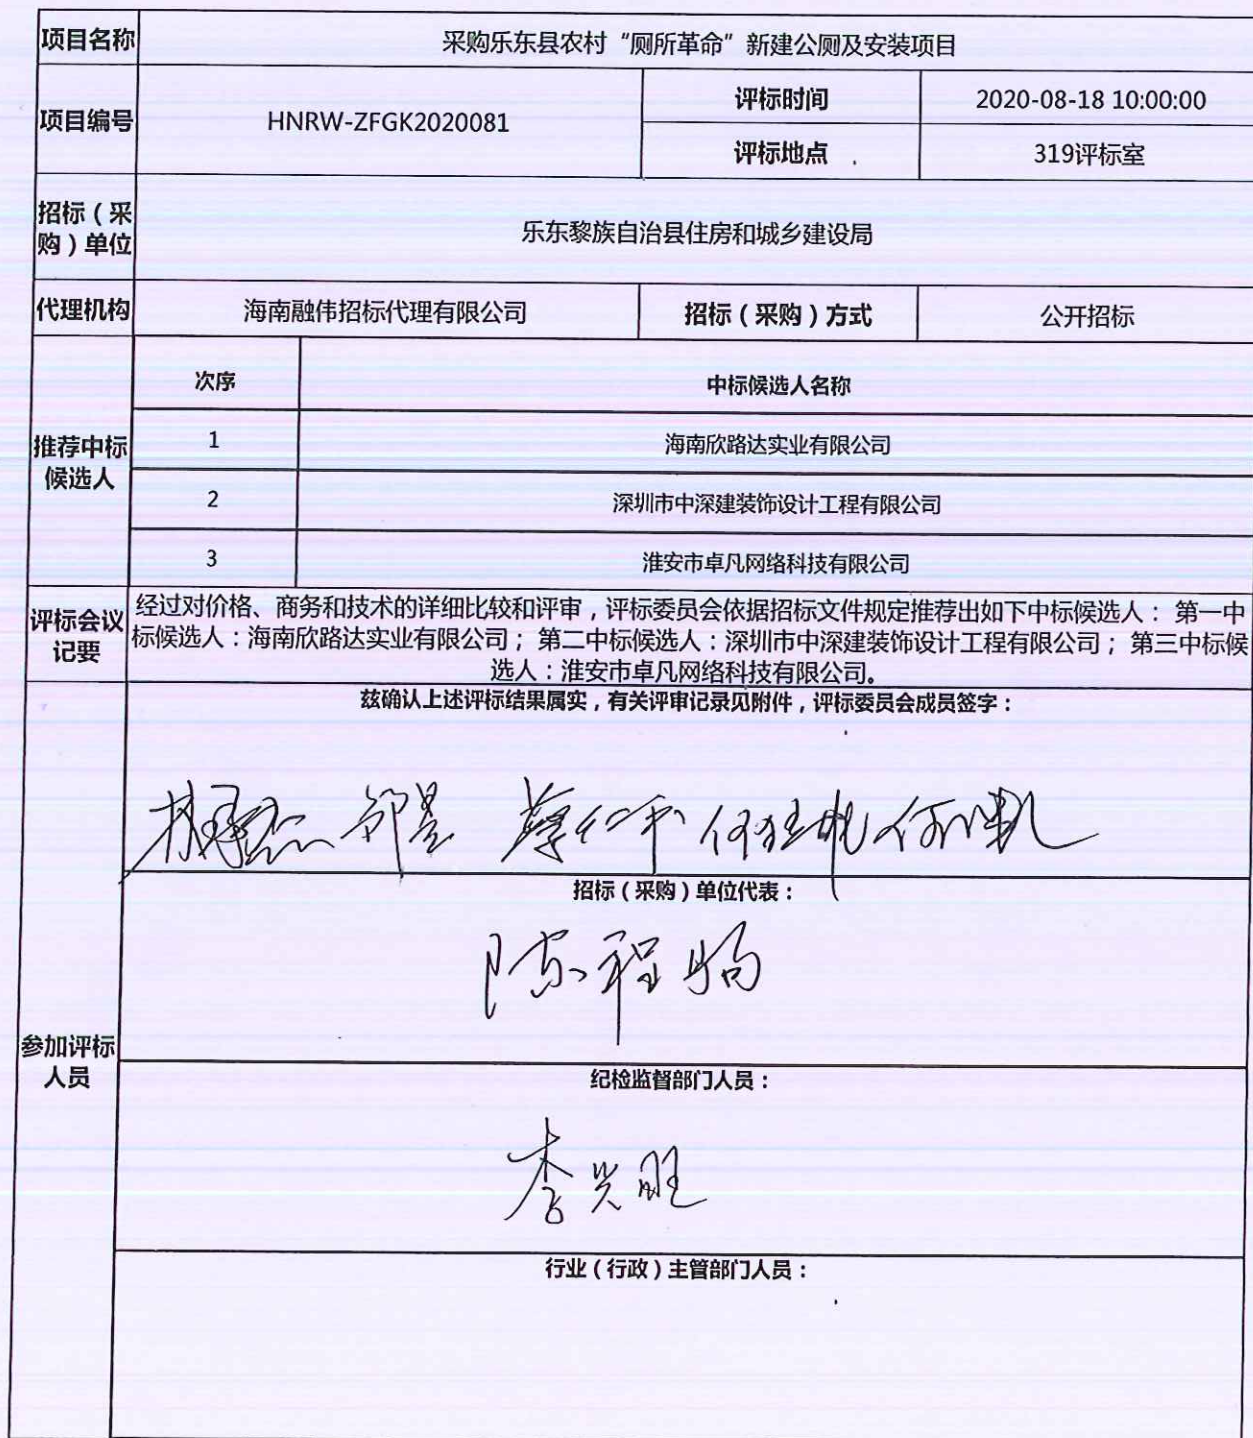 项目名称
采购乐东县农村“厕所革命”新建公厕及安装项目
项目编号
HNRW-ZFGK2020081
评标时间
2020-08-18 10:00:00
评标地点
319评标室
招标（采
购）单位
乐东黎族自治县住房和城乡建设局
代理机构
海南融伟招标代理有限公司
招标（采购）方式
公开招标
推荐中标
候选人
次序
中标候选人名称
1
海南欣路达实业有限公司
2
深圳市中深建装饰设计工程有限公司
3
淮安市卓凡网络科技有限公司
评标会议
记要
经过对价格、商务和技术的详细比较和评审，评标委员会依据招标文件规定推荐出如下中标候选人： 第一中
标候选人：海南欣路达实业有限公司； 第二中标候选人：深圳市中深建装饰设计工程有限公司； 第三中标候
选人：淮安市卓凡网络科技有限公司。
参加评标
人员
兹确认上述评标结果属实，有关评审记录见附件，评标委员会成员签字：
招标（采购）单位代表：
纪检监督部门人员：
行业（行政）主管部门人员：